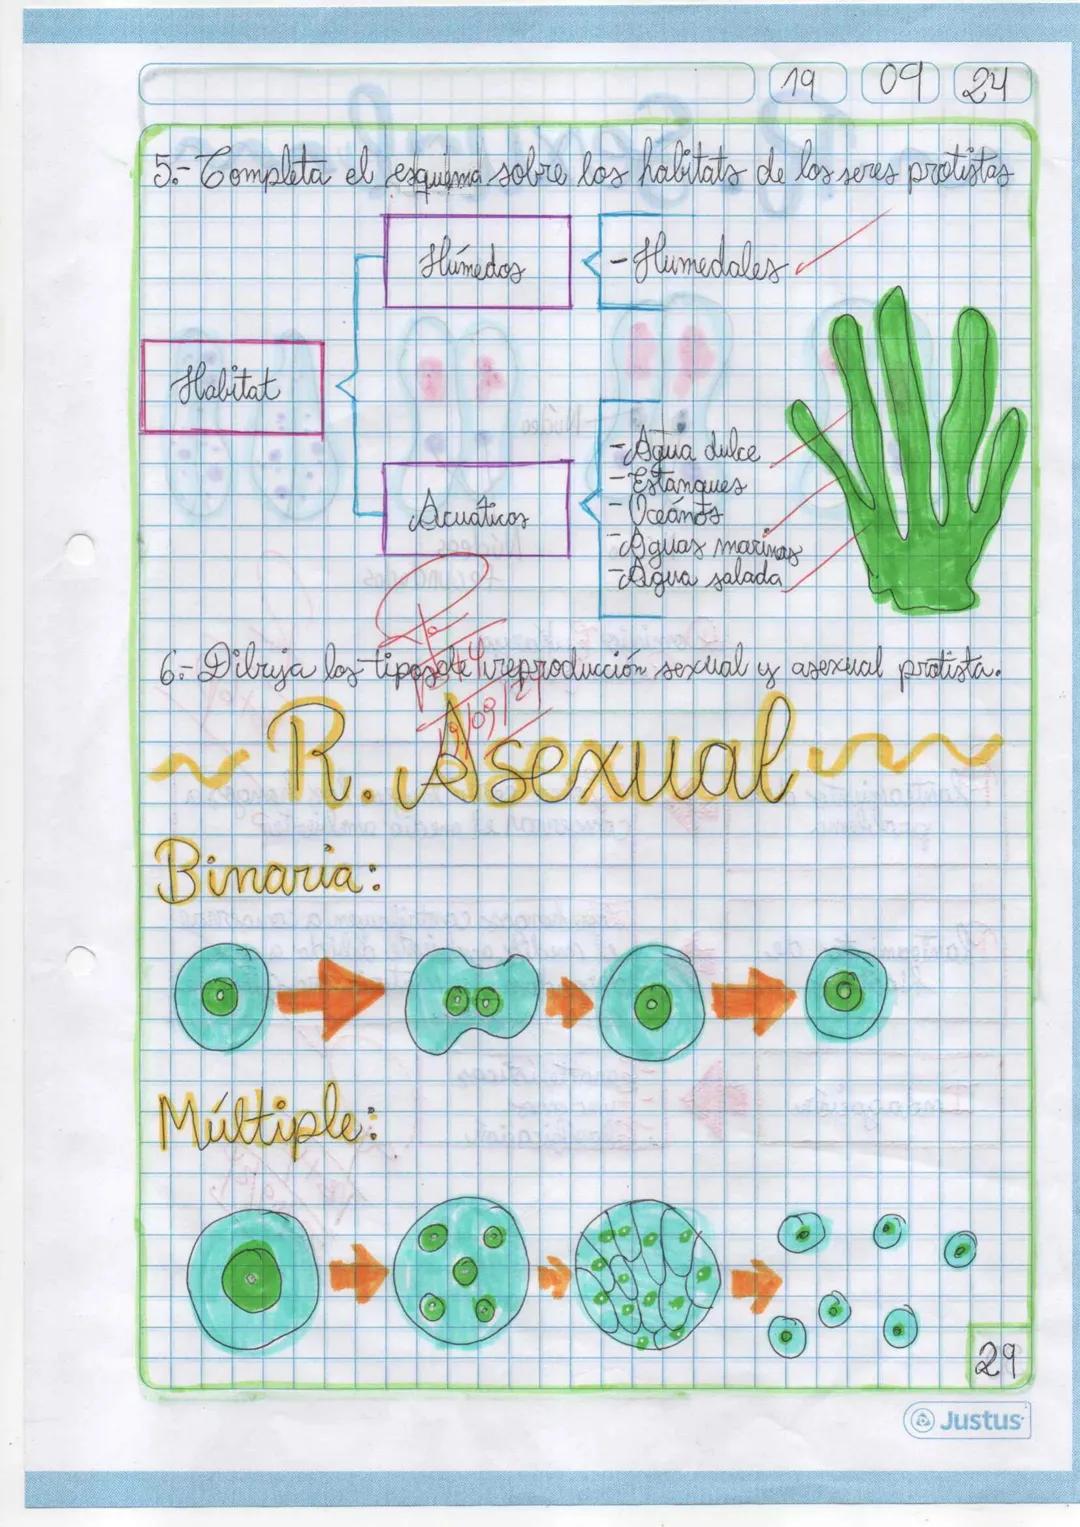 19 09 24
5.- Completa el esquema sobre los habitats de los seres protistas
Húmedos
- Humedales
Habitat
Acuáticos
- Agua dulce
- Estanques
- Oceános
- Aguas marinas
- Agua salada
19/09/24
6.- Dibuja los tipos de reproducción sexual y asexual protista.
~ R. Asexual
Binaria:
Múltiple:
29
Justus